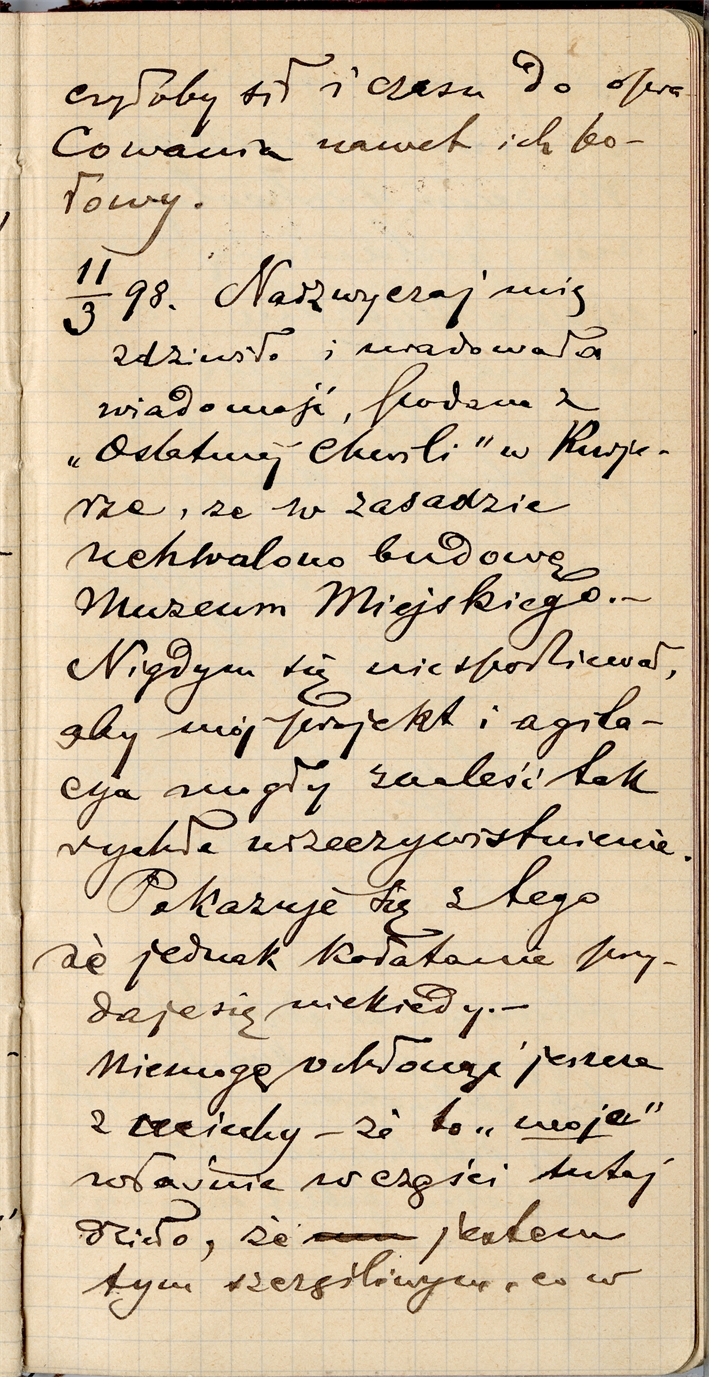 czyłoby sił i czasu do opra-
cowania nawet ich po-
łowy.
11/3 98. Nadzwyczaj mię
zdziwiło i uradowała
wiadomość, podana z
„Ostatniej Chwili” w Kurje-
rze, że w zasadzie
uchwalono budowę
Muzeum Miejskiego.—
Nigdym się nie spodziewał,
aby mój projekt i agita-
cya mogły znaleść tak
rychłe urzeczywistnienie.
Pokazuje się z tego
że jednak kołatanie przy-
daje się niekiedy.—
Niemogę ochłonąć jeszcze
z uciechy – że to „moje”
właśnie w części tutaj
dzieło, że jestem
tym szczęśliwym, co w